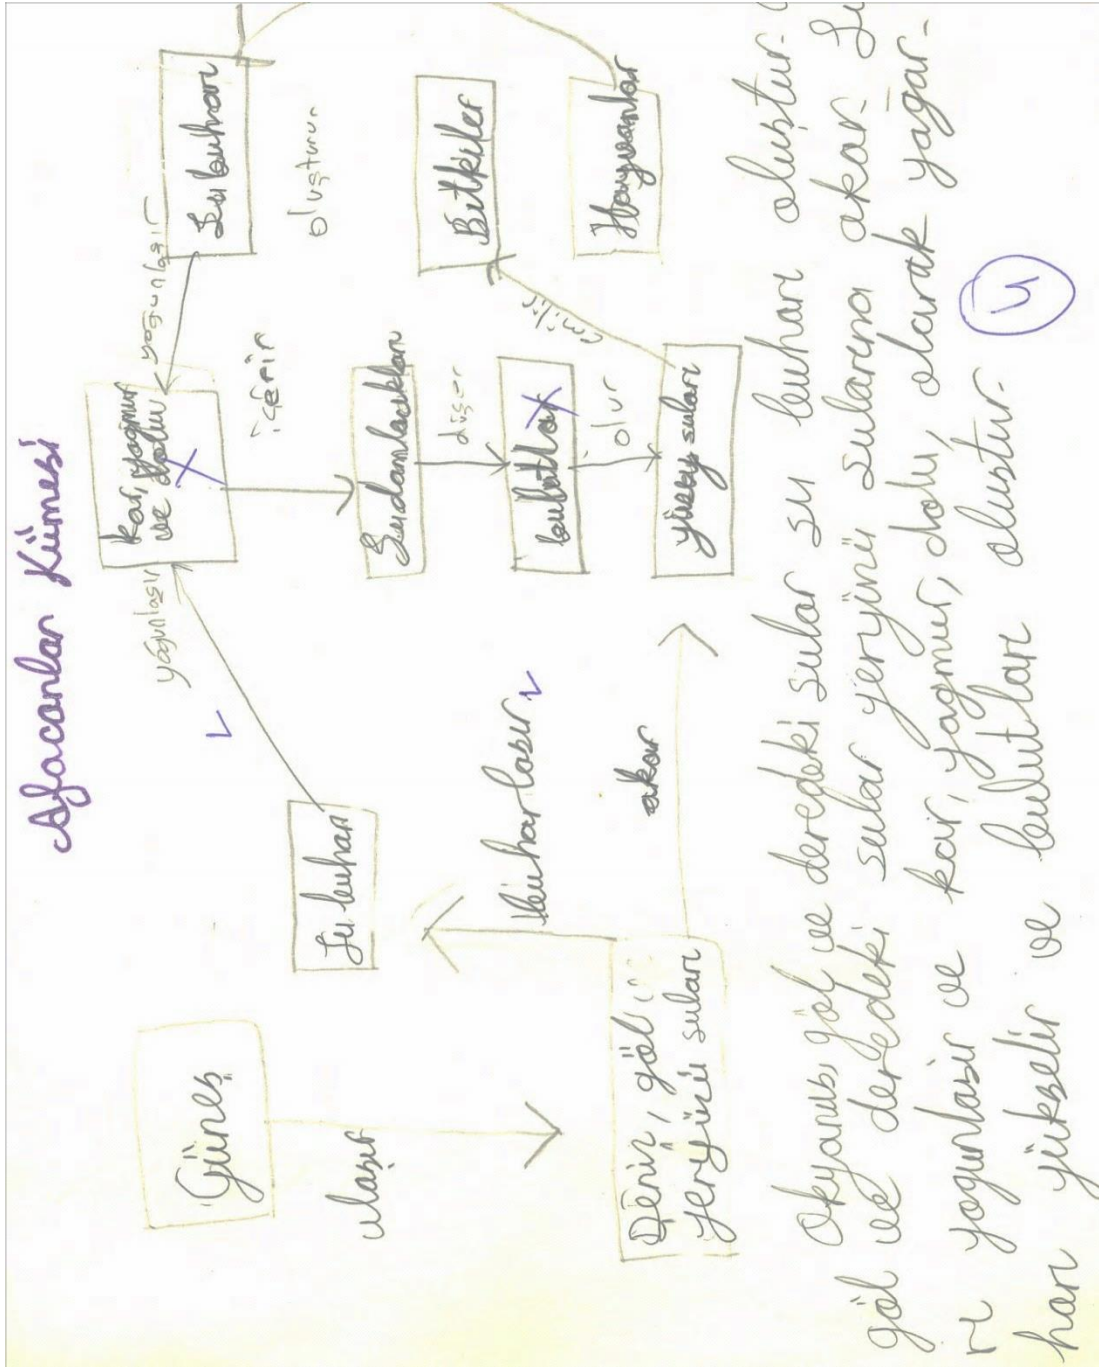 Afacanlar Kümesi
Güneş
ulaşır
Deniz, göl
yeryüzü suları
buharlaşır
akar
Su buharı
yoğunlaşır
kar, yağmur
ve dolu
yoğunlaşır
Su buharı
içerir
oluşturur
Su damlacıkları
düşer
bulutlar
olur
yüzey suları
Bitkiler
Hayvanlar
Okyanus, göl ve deredeki sular su buharı oluştur.
göl ve deredeki sular yeryüzü sularına akar. Su
rı yoğunlaşır ve kar, yağmur, dolu, olarak yağar.
harı yükselir ve bulutları oluştur.
4